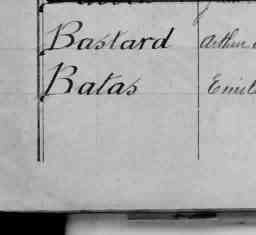 Bastard Arthur
Batas Emile